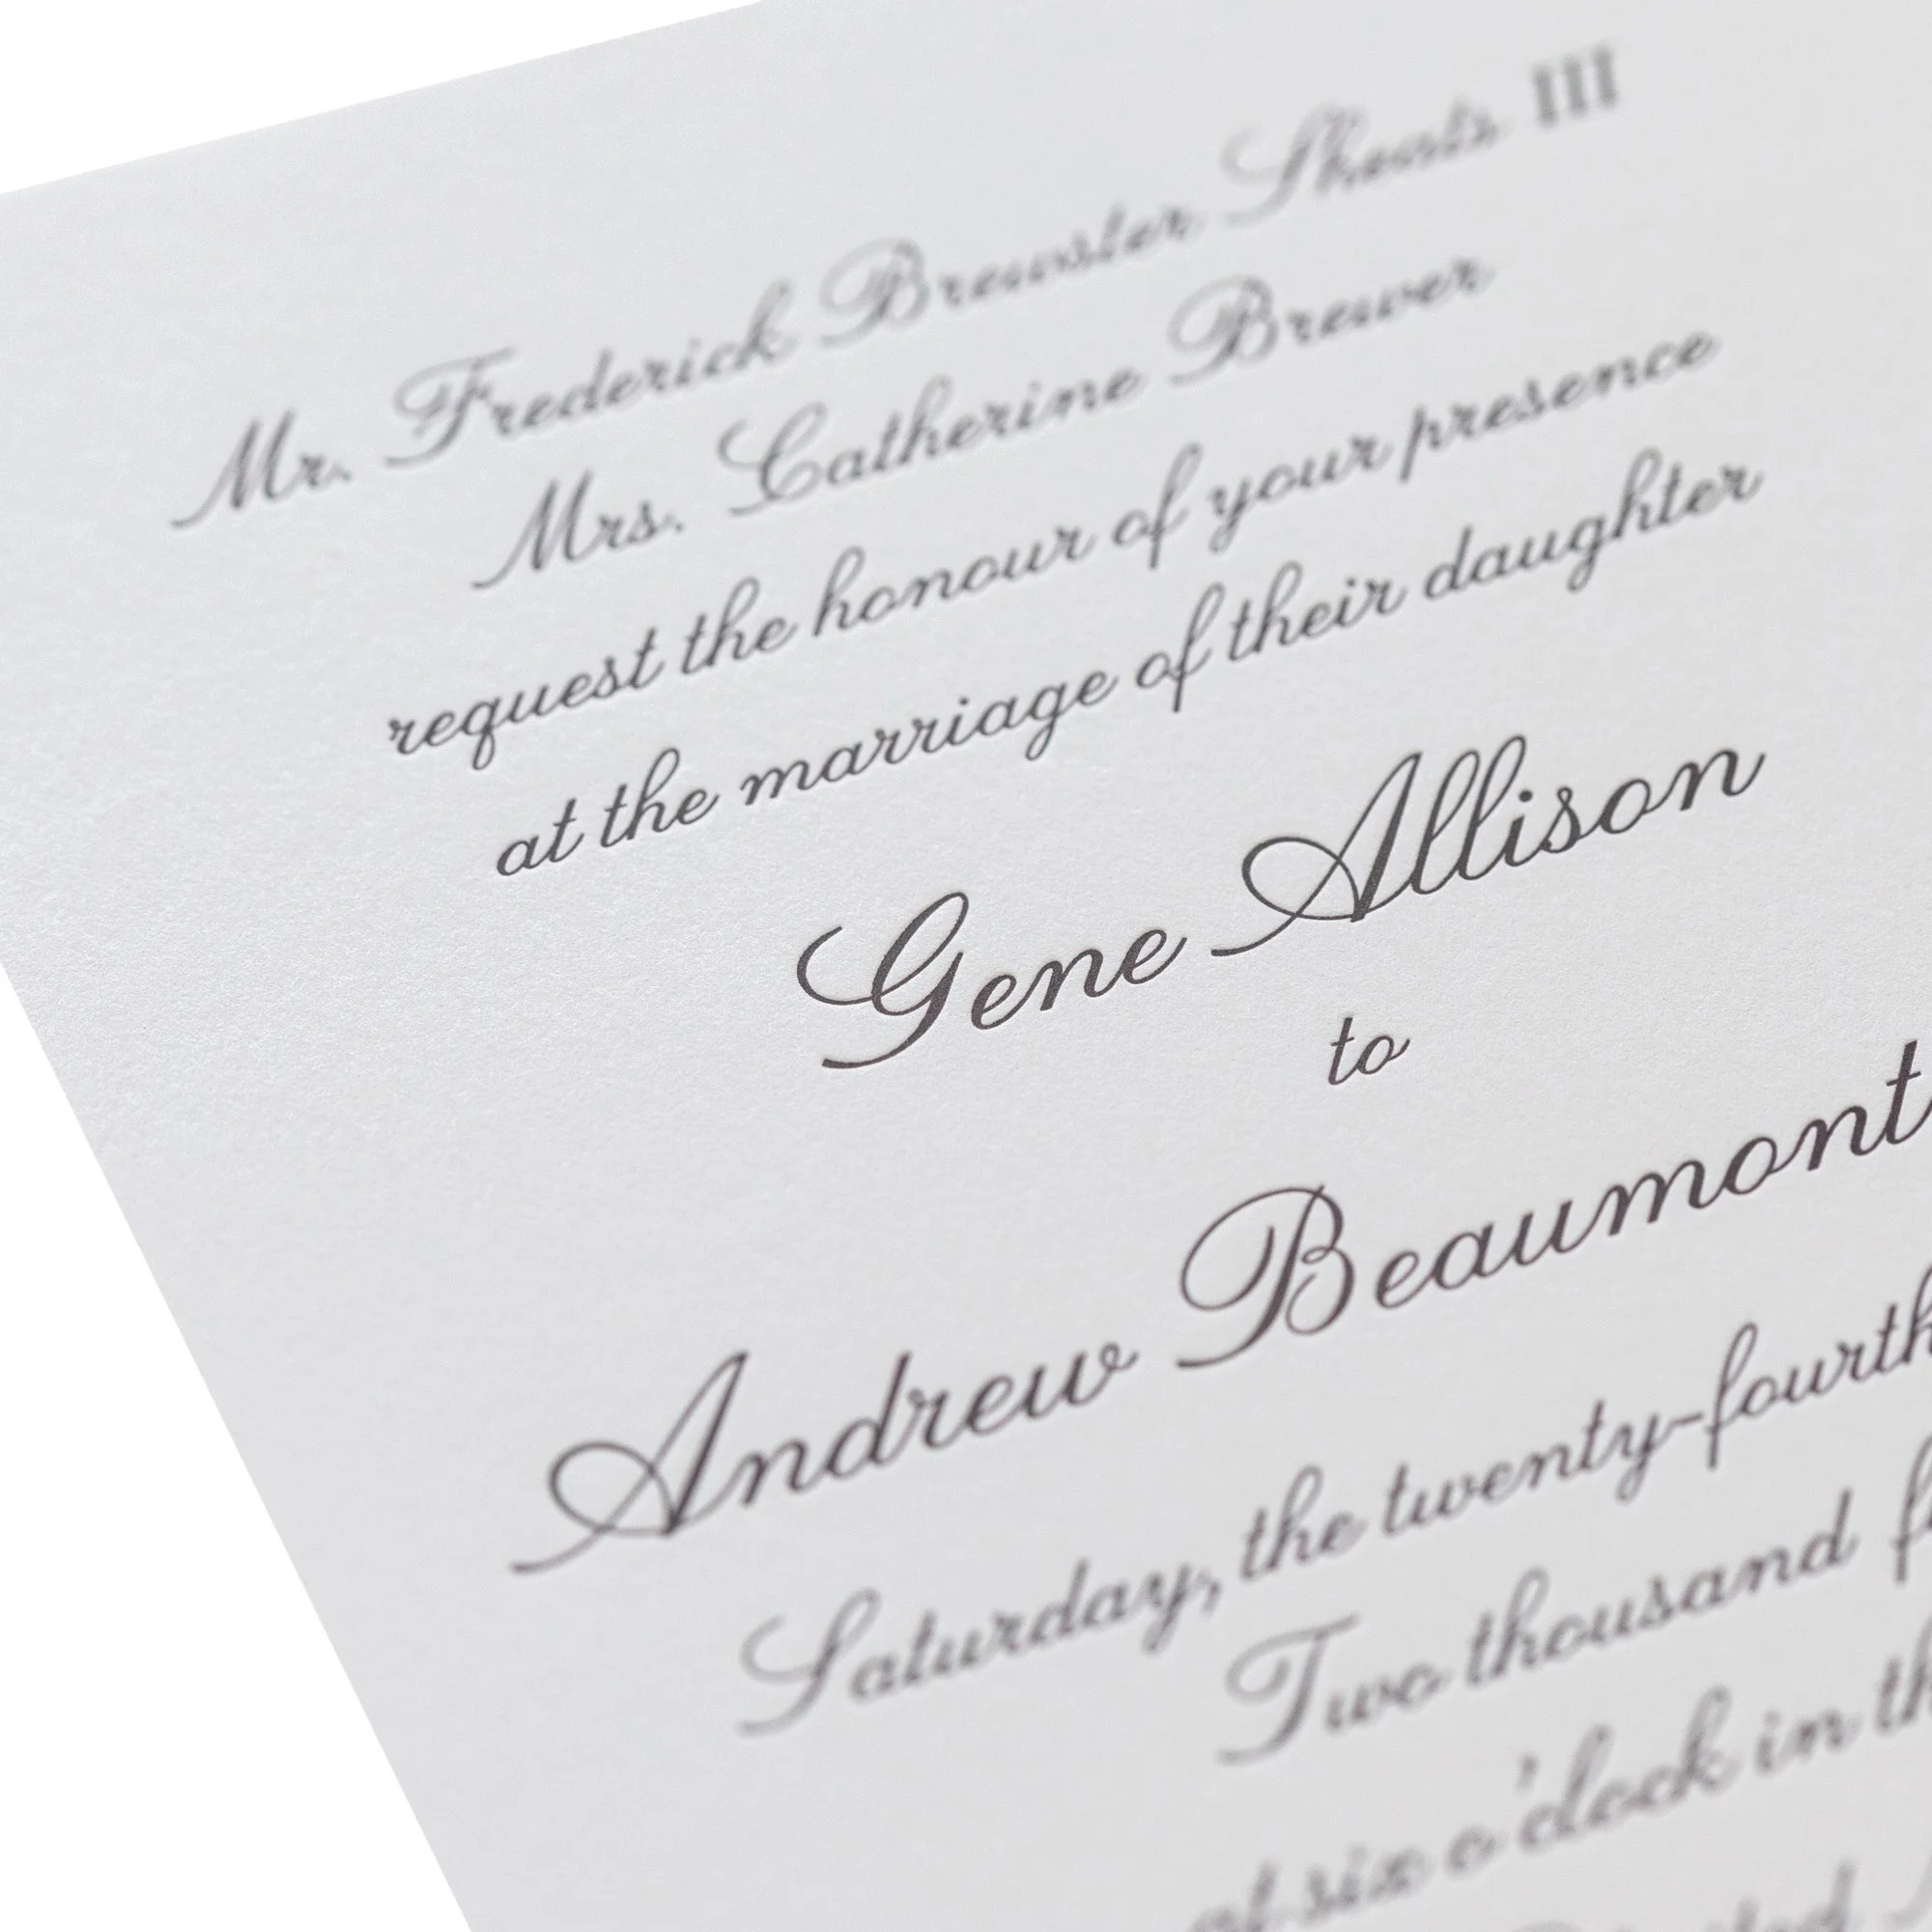 Mr. Frederick Brewster Sheats III
Mrs. Catherine Brewer
request the honour of your presence
at the marriage of their daughter
Gene Allison
to
Andrew Beaumont
Saturday, the twenty-fourth
Two thousand
at six o'clock in